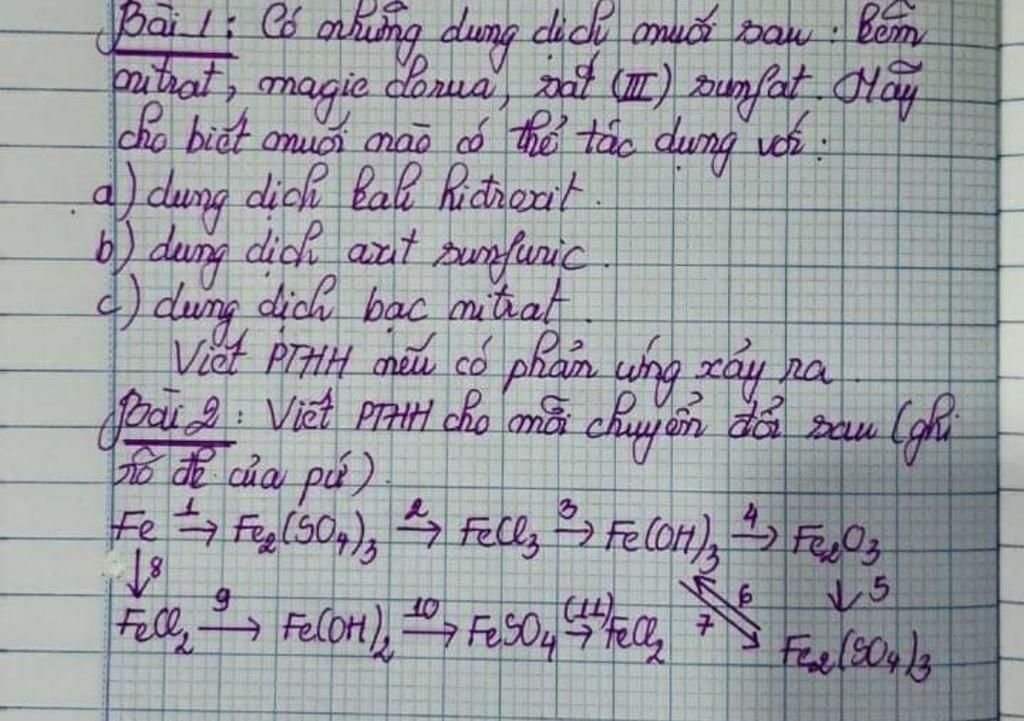 Bài 1: Có những dung dịch muối sau: Kẽm
nitrat, magie clorua, sắt (III) sunfat. Hãy
cho biết muối nào có thể tác dụng với:
a) dung dịch kali hiđroxit.
b) dung dịch axit sunfuric.
c) dung dịch bạc nitrat.
Viết PTHH nếu có phản ứng xảy ra.
Bài 2: Viết PTHH cho mỗi chuyển đổi sau (ghi
rõ đk của pứ).
Fe 1→ Fe₂(SO₄)₃ 2→ FeCl₃ 3→ Fe(OH)₃ 4→ Fe₂O₃
↓8 6 7 ↓5
FeCl₂ 9→ Fe(OH)₂ 10→ FeSO₄ (11)→ FeCl₂ Fe₂(SO₄)₃